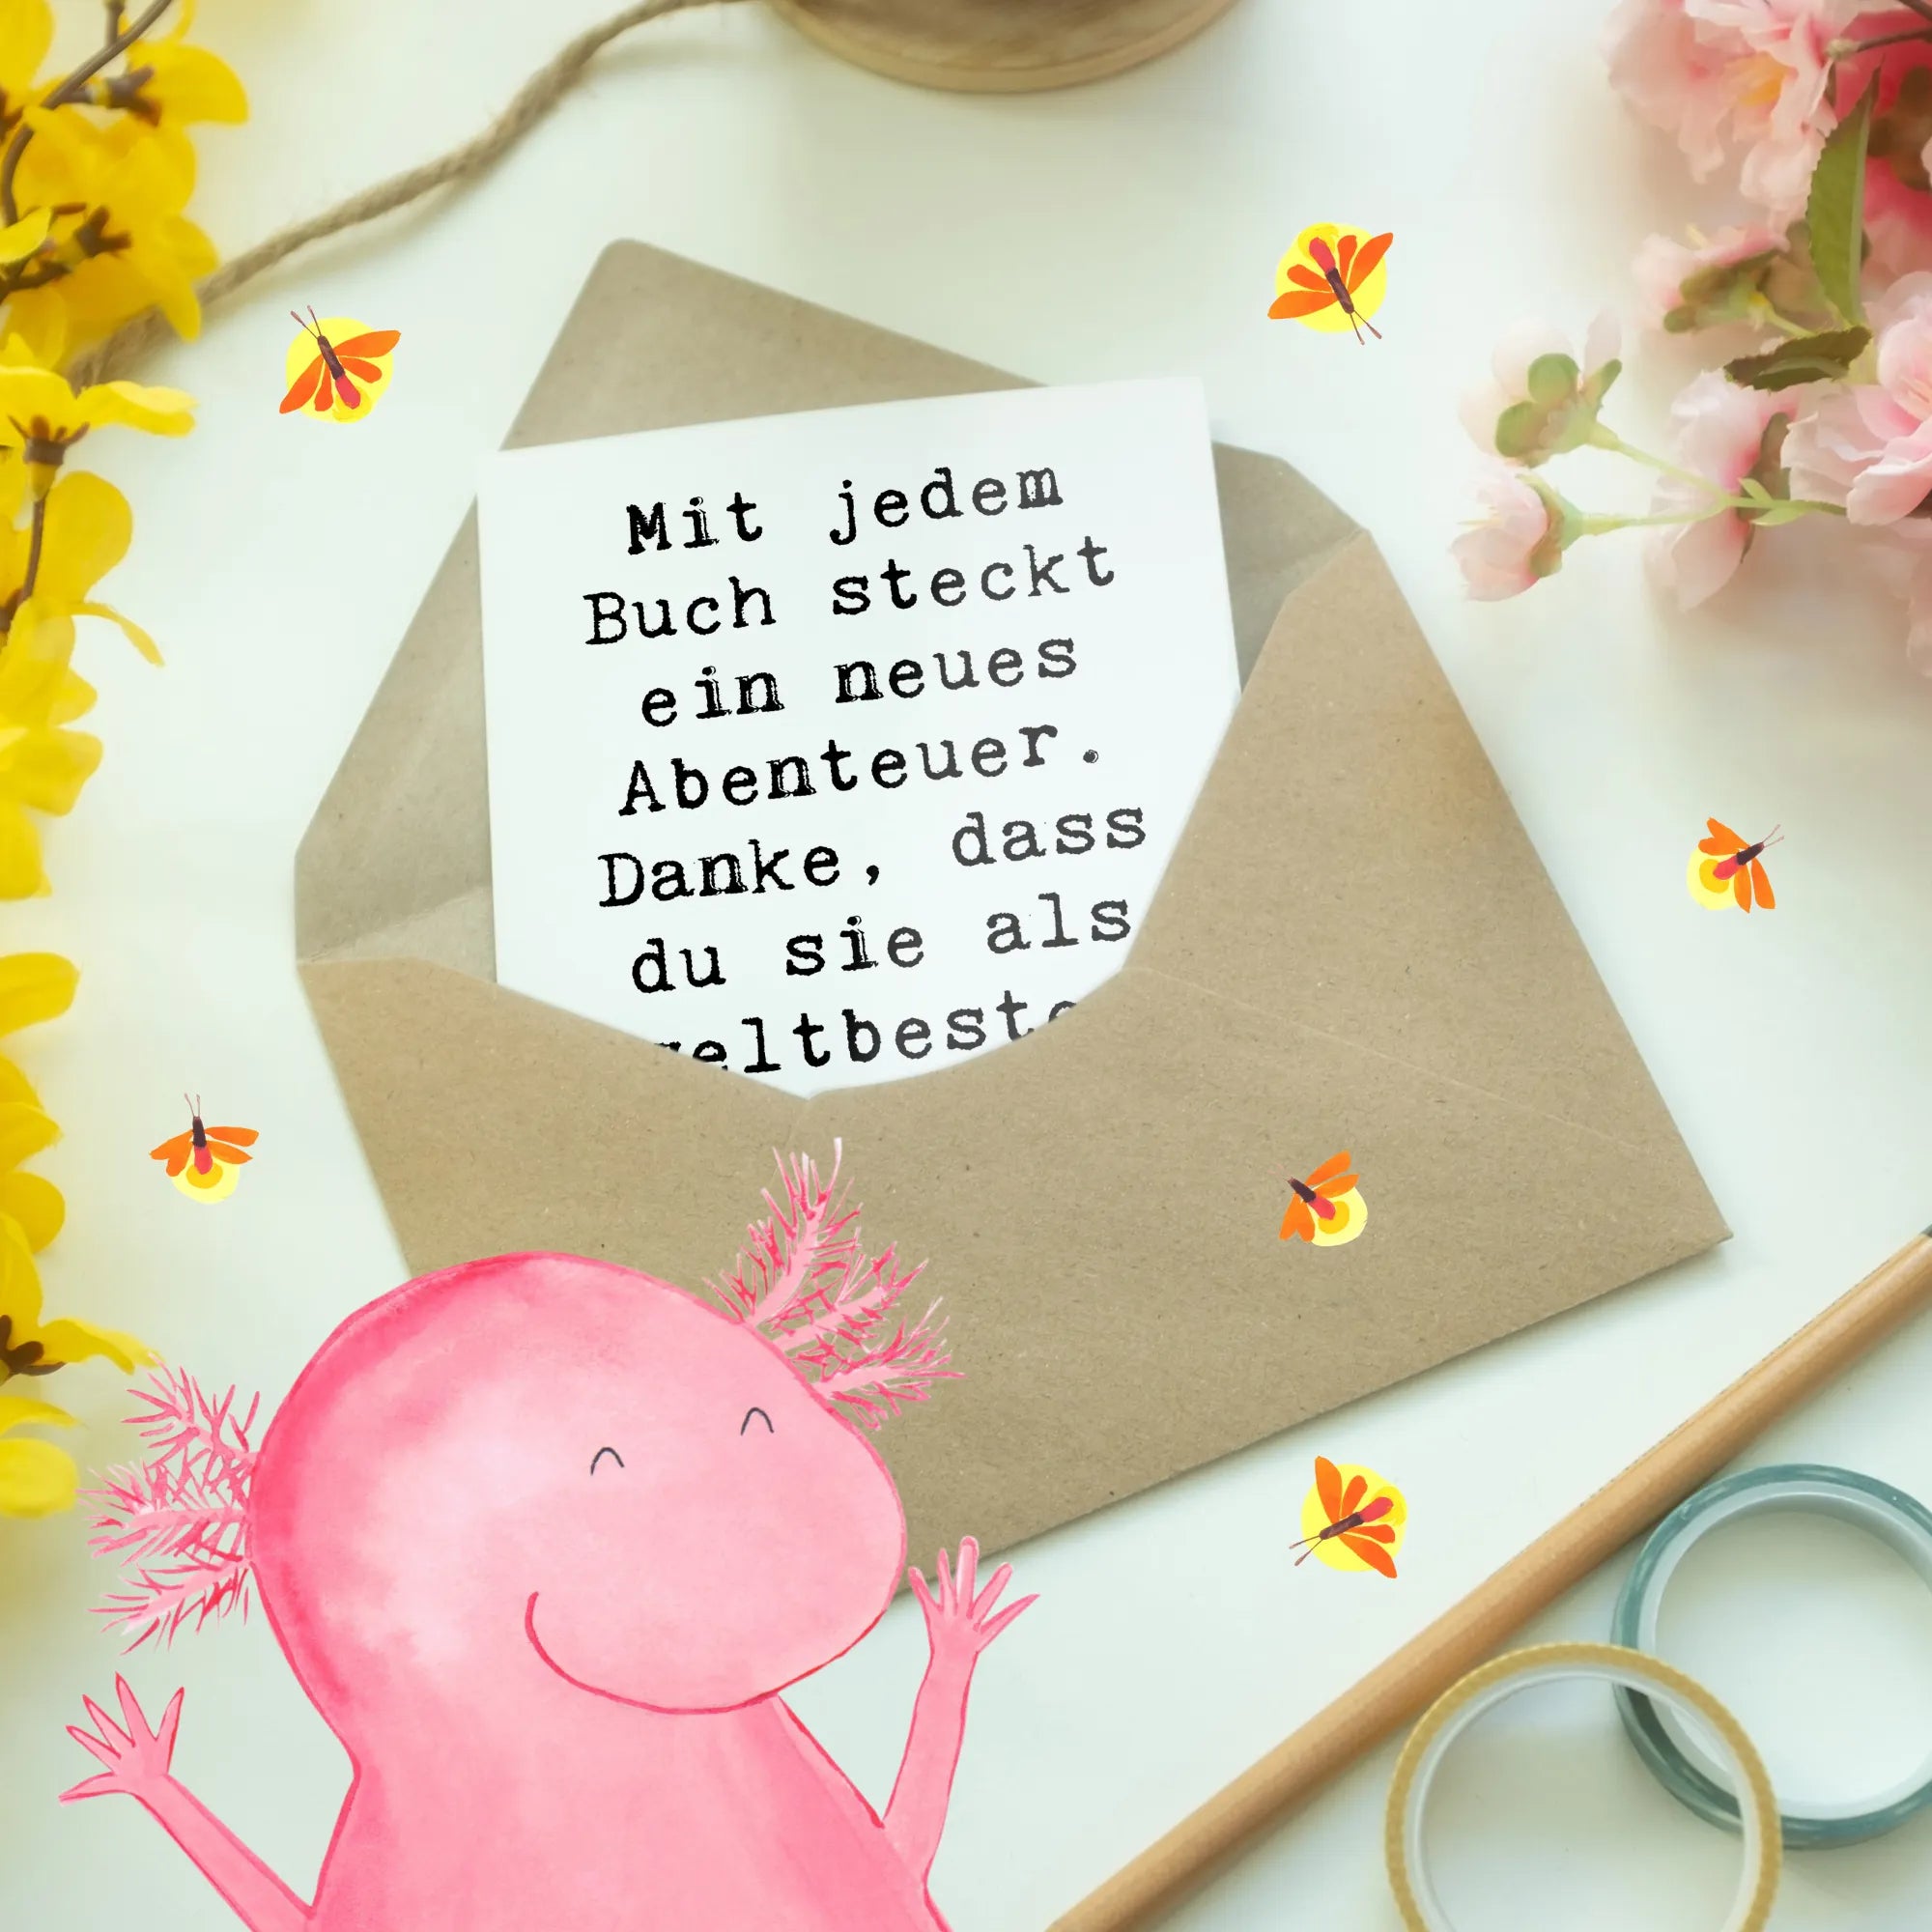 Mit jedem
Buch steckt
ein neues
Abenteuer.
Danke, dass
du sie als